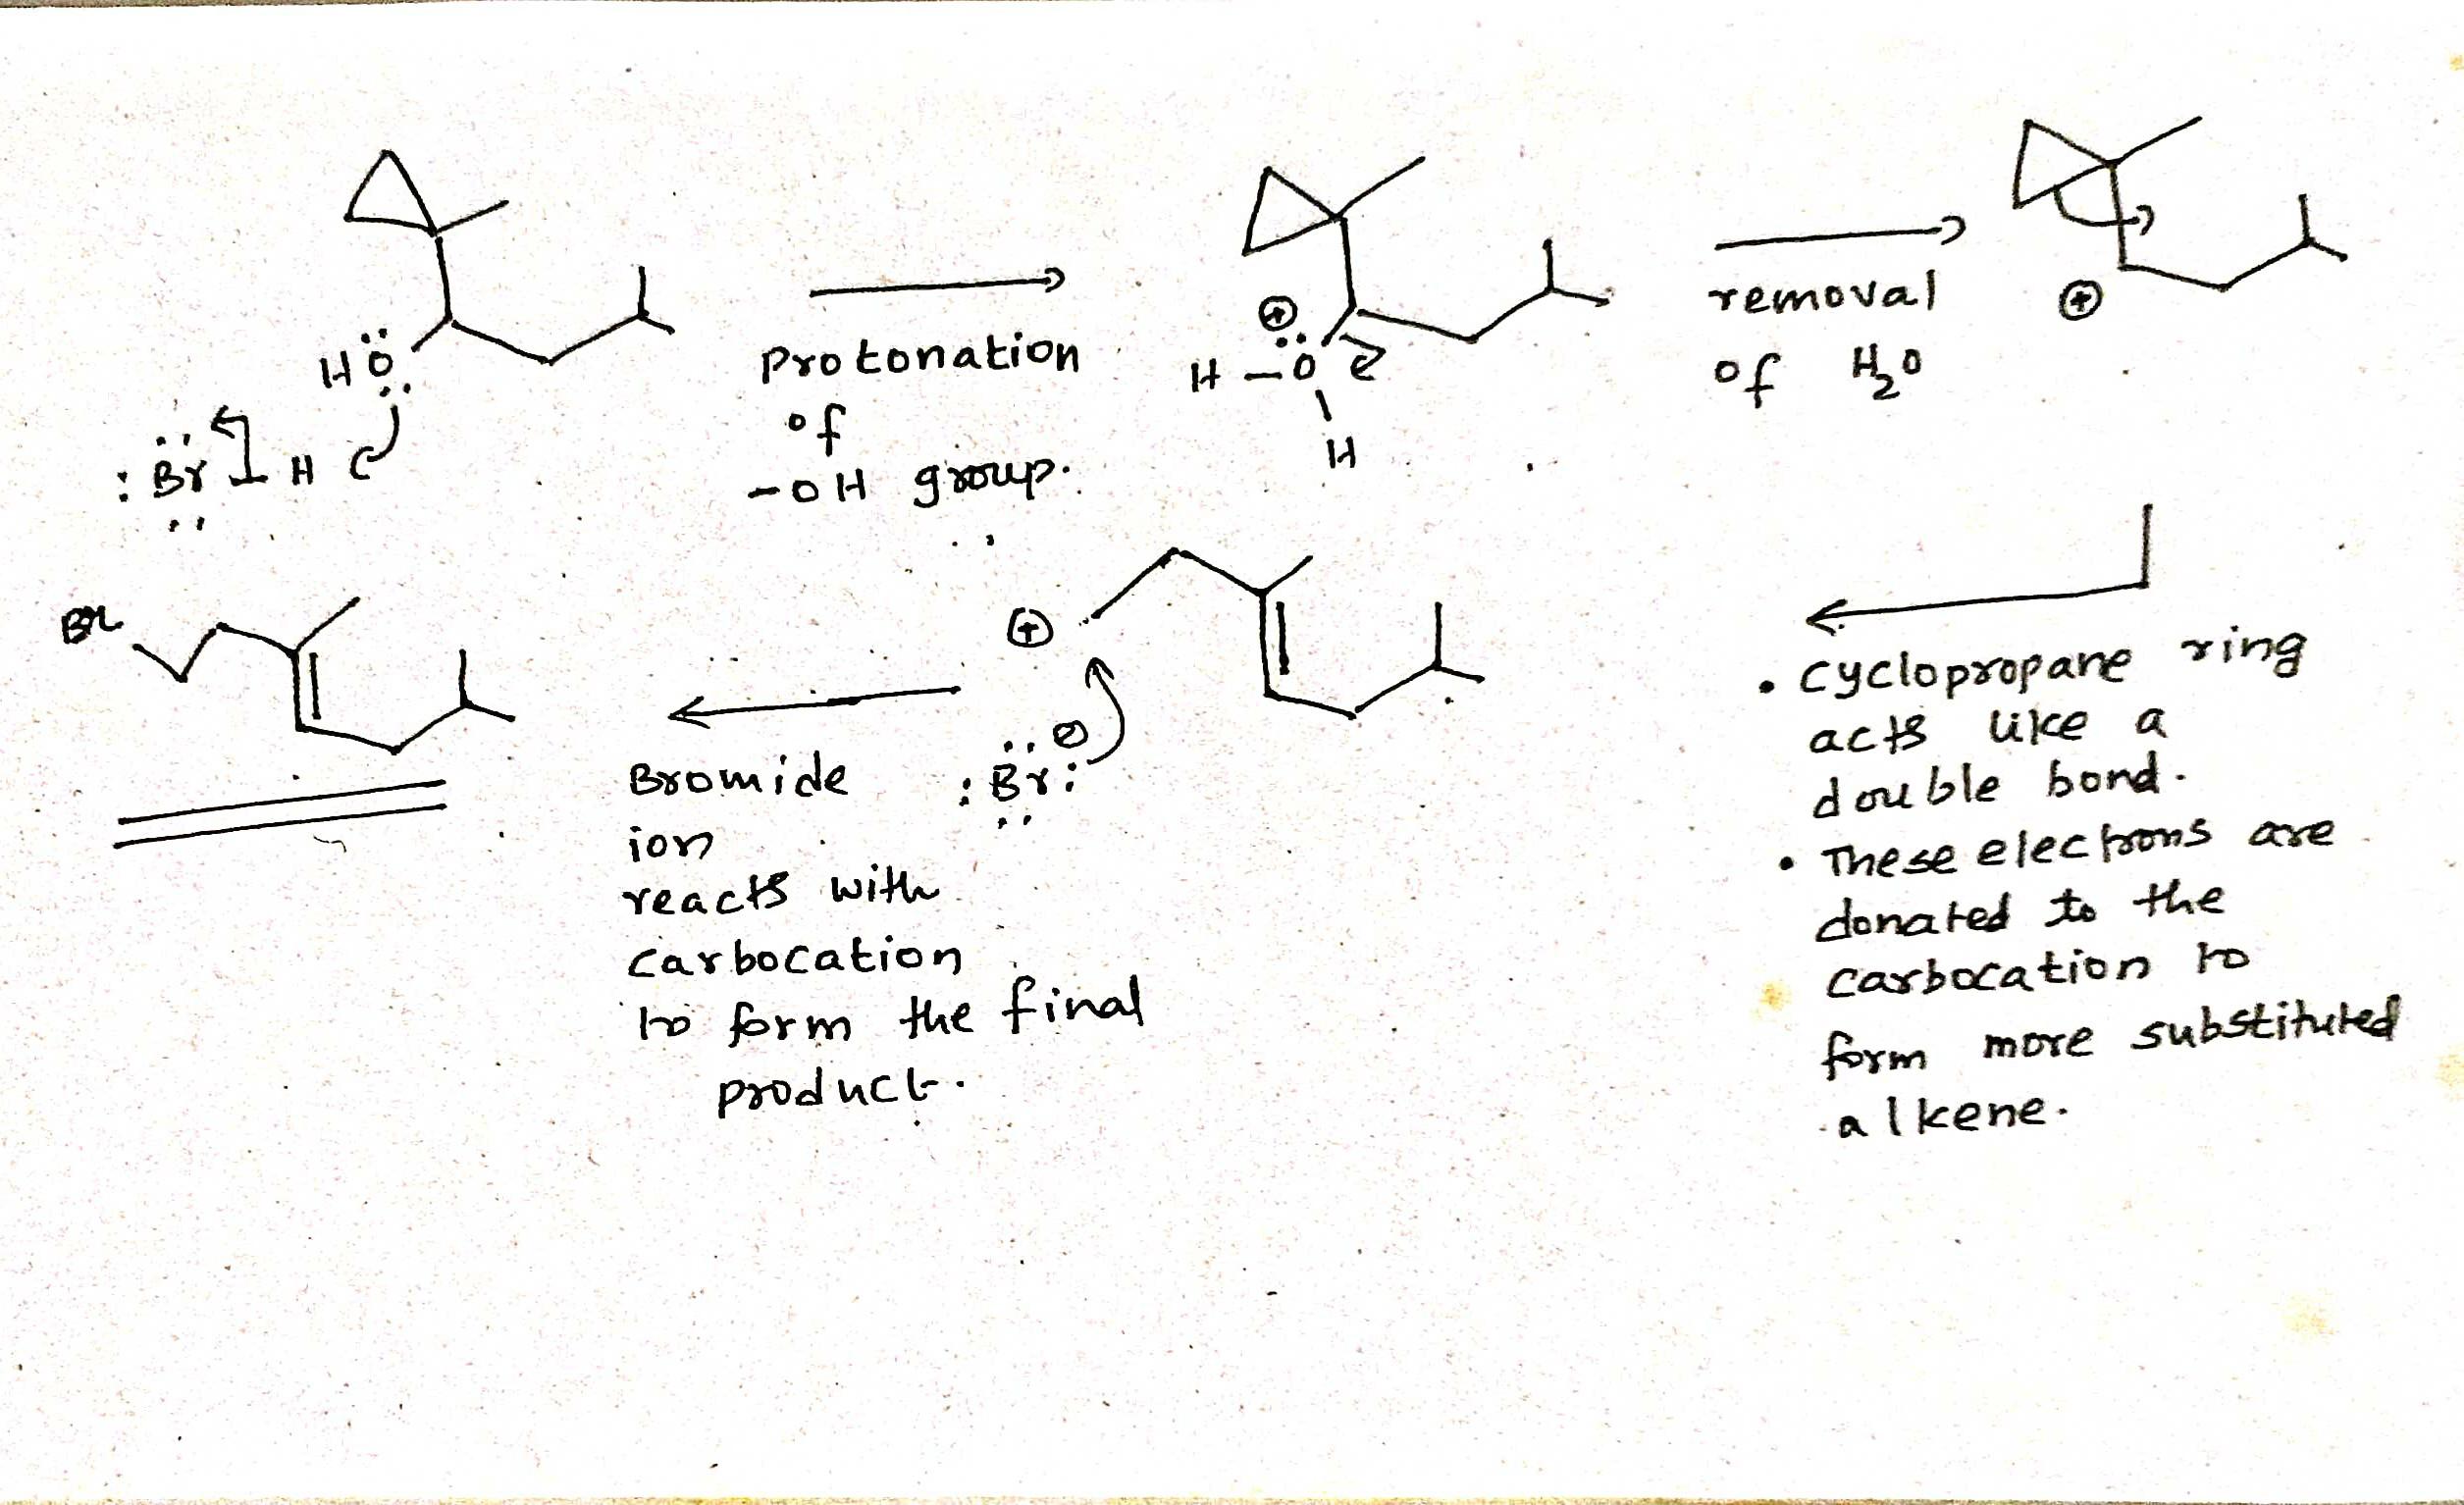 HÖ
: Br – H
Protonation
of
-OH group.
⊕
H – O
H
removal
of H₂O
⊕
Br
⊕
: Br : ⊖
Bromide
ion
reacts with
carbocation
to form the final
product.
• cyclopropane ring
acts like a
double bond.
• These electrons are
donated to the
carbocation to
form more substituted
alkene.